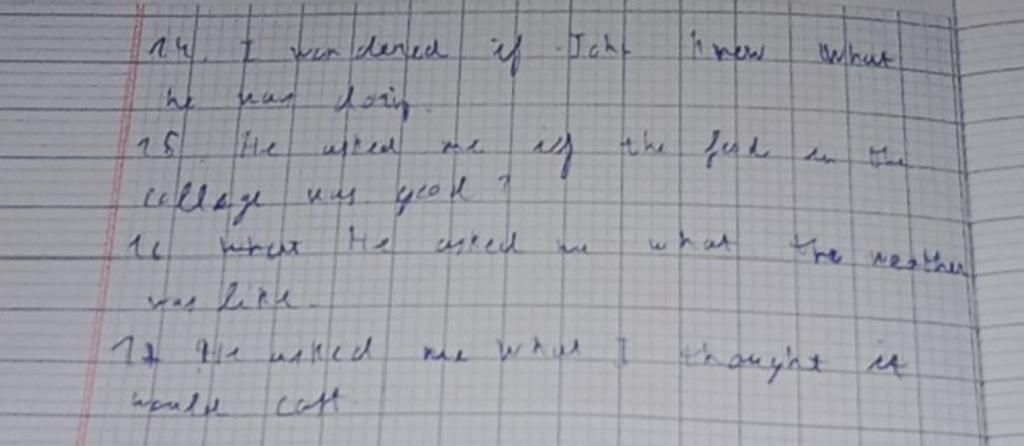 14. I wondered if John knew what
he was doing.
15. He asked me if the food in the
college was good?
16 what He asked me what the weather
was like.
17 He asked me what I thought it
would cost